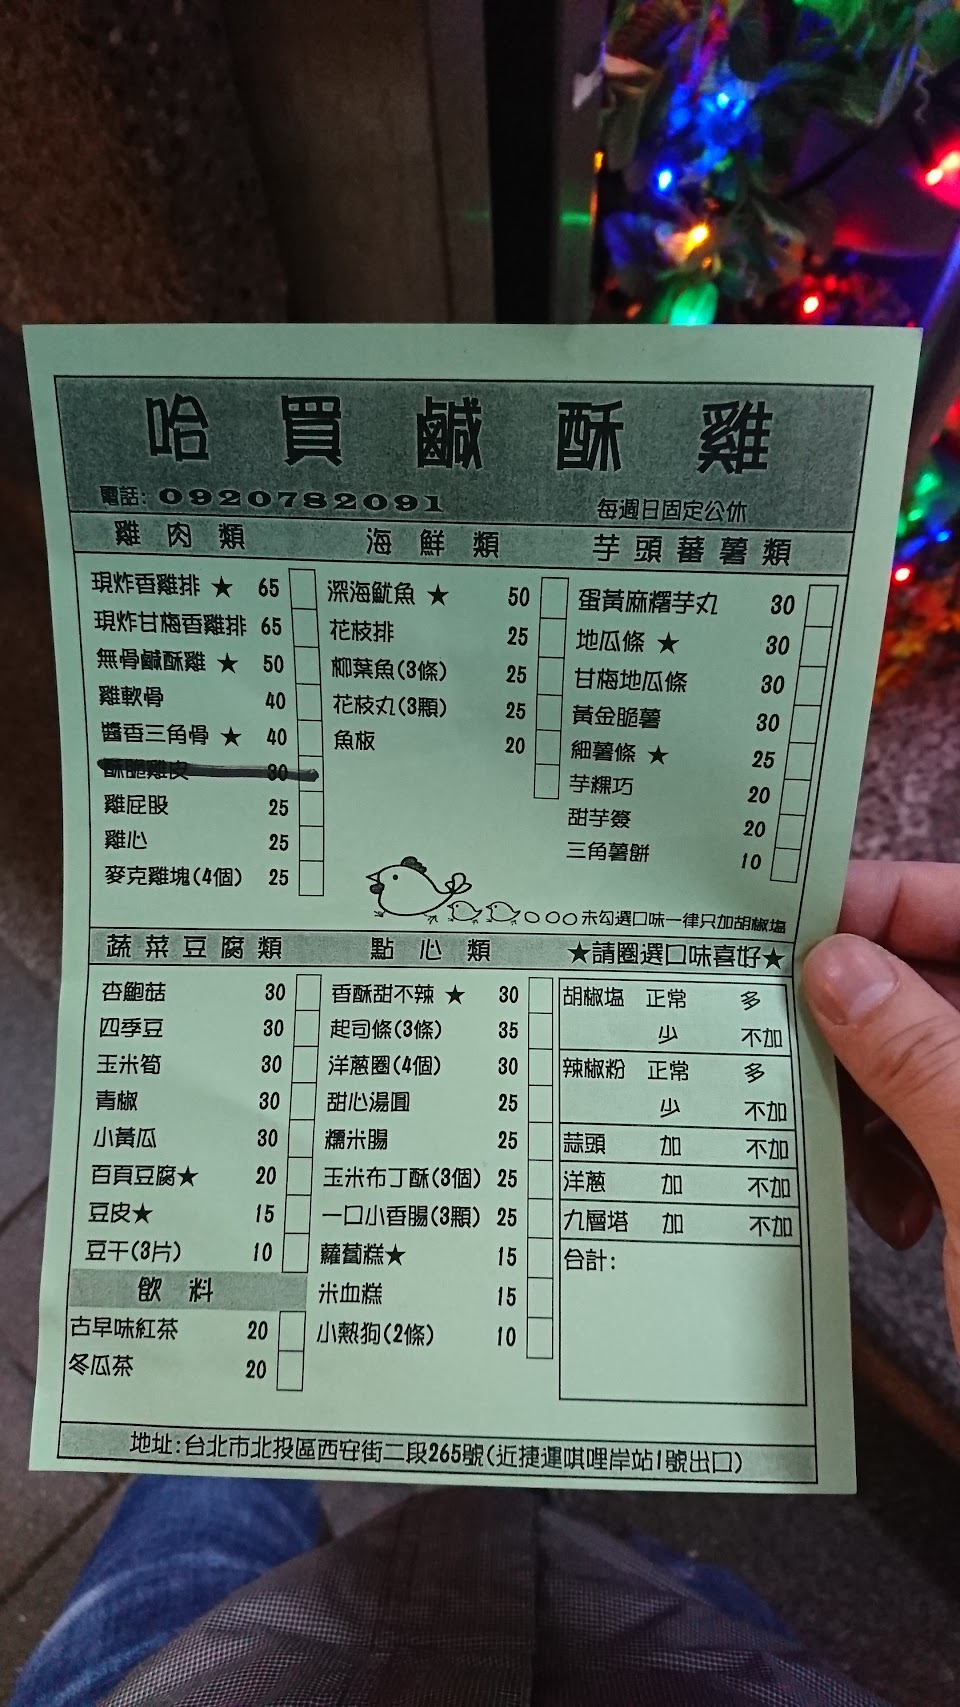 哈買鹹酥雞
電話:0920782091 每週日固定公休
雞肉類
現炸香雞排★ 65
現炸甘梅香雞排 65
無骨鹹酥雞★ 50
雞軟骨 40
醬香三角骨★ 40
酥脆雞皮 30
雞屁股 25
雞心 25
麥克雞塊(4個) 25
海鮮類
深海魷魚★ 50
花枝排 25
柳葉魚(3條) 25
花枝丸(3顆) 25
魚板 20
芋頭蕃薯類
蛋黃麻糬芋丸 30
地瓜條★ 30
甘梅地瓜條 30
黃金脆薯 30
細薯條★ 25
芋粿巧 20
甜芋簽 20
三角薯餅 10
○○○未勾選口味一律只加胡椒塩
蔬菜豆腐類
杏鮑菇 30
四季豆 30
玉米筍 30
青椒 30
小黃瓜 30
百頁豆腐★ 20
豆皮★ 15
豆干(3片) 10
飲料
古早味紅茶 20
冬瓜茶 20
點心類
香酥甜不辣★ 30
起司條(3條) 35
洋蔥圈(4個) 30
甜心湯圓 25
糯米腸 25
玉米布丁酥(3個) 25
一口小香腸(3顆) 25
蘿蔔糕★ 15
米血糕 15
小熱狗(2條) 10
★請圈選口味喜好★
胡椒塩 正常 多
少 不加
辣椒粉 正常 多
少 不加
蒜頭 加 不加
洋蔥 加 不加
九層塔 加 不加
合計:
地址:台北市北投區西安街二段265號(近捷運唭哩岸站1號出口)